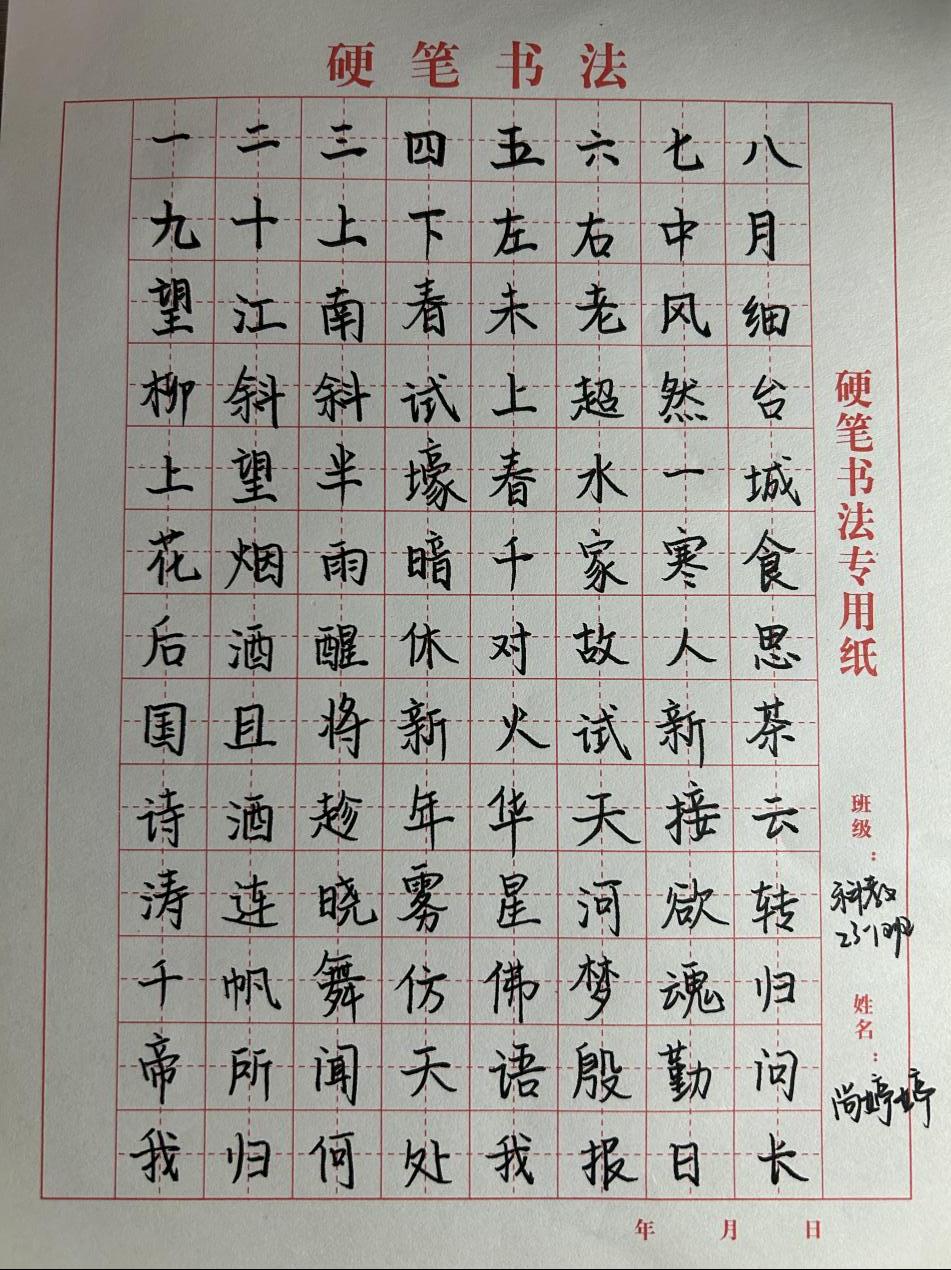 硬笔书法
一二三四五六七八
九十上下左右中月
望江南春未老风细
柳斜斜试上超然台
上望半壕春水一城
花烟雨暗千家寒食
后酒醒休对故人思
国且将新火试新茶
诗酒趁年华天接云
涛连晓雾星河欲转
千帆舞仿佛梦魂归
帝所闻天语殷勤问
我归何处我报日长
硬笔书法专用纸
班级：
科教
姓名：
尚婷婷
年 月 日